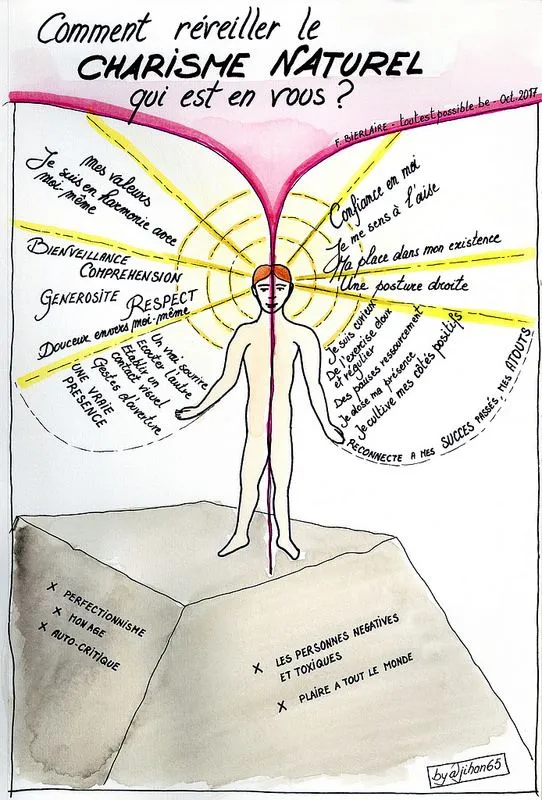 Comment réveiller le
CHARISME NATUREL
qui est en vous ?
F. BIERLAIRE - toutestpossible.be - Oct. 2017
Mes valeurs
Je suis en harmonie avec
moi-même
BIENVEILLANCE
COMPREHENSION
GENEROSITE RESPECT
Douceur envers moi-même
Un vrai sourire
Ecouter l'autre
Etablir un
contact visuel
Gestes d'ouverture
UNE VRAIE
PRESENCE
Confiance en moi
Je me sens à l'aise
Ma place dans mon existence
Une posture droite
Je suis curieux
De l'exercise doux
et régulier
Des pauses ressourcement
Je dose ma présence
Je cultive mes côtés positifs
RECONNECTE A MES SUCCES PASSÉS, MES ATOUTS
x PERFECTIONNISME
x MON AGE
x AUTO-CRITIQUE
x LES PERSONNES NEGATIVES
ET TOXIQUES
x PLAIRE A TOUT LE MONDE
by @jihan65